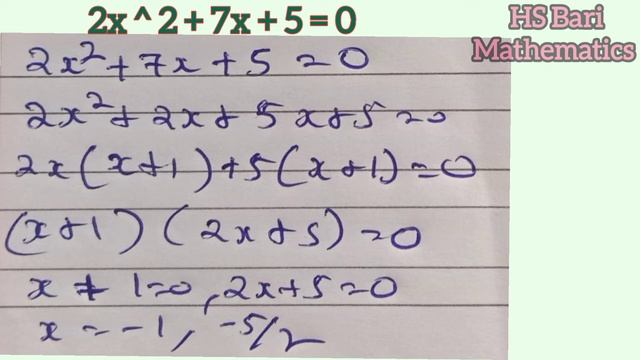 2x^2+7x+5=0
HS Bari
Mathematics
2x²+7x+5=0
2x²+2x+5x+5=0
2x(x+1)+5(x+1)=0
(x+1)(2x+5)=0
x+1=0, 2x+5=0
x=-1, -5/2